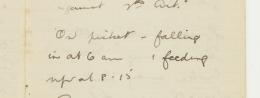 against 2nd Art.
On picket - falling
in at 6 am & feeding
up at 8.15